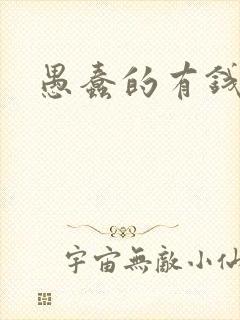 愚蠢的有錢
宇宙無敵小仙